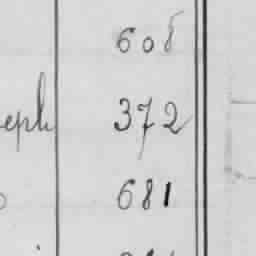 608
eph 372
681